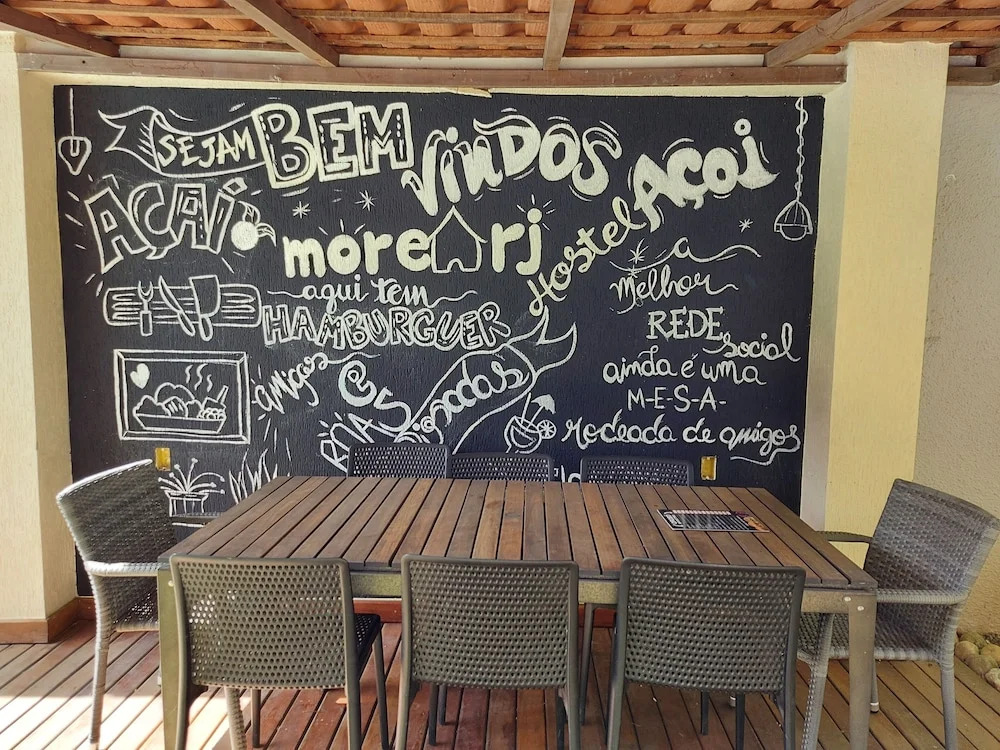 SEJAM BEM VINDOS
AÇAÍ
more rj
Hostel Açai
aqui tem
HAMBURGUER
a
melhor
REDE
social
ainda é uma
M-E-S-A-
Rodeada de amigos
amigos
e